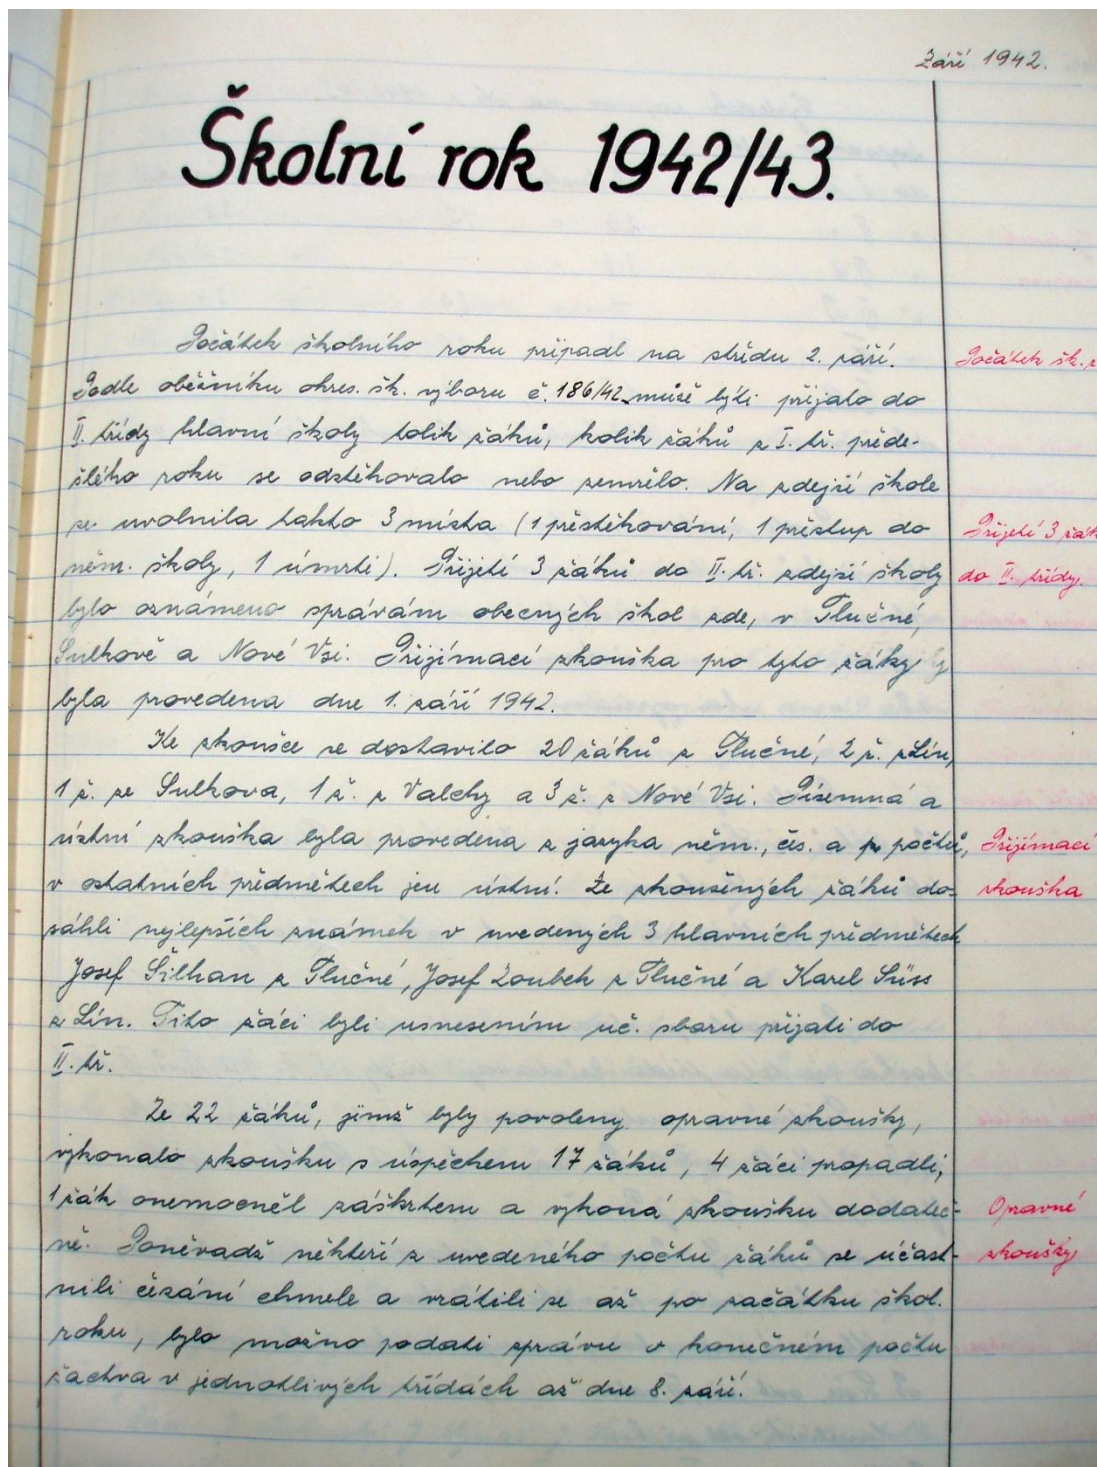 Září 1942.
Školní rok 1942/43.
Počátek školního roku připadl na středu 2. září.
Počátek šk.
Podle oběžníku okres. šk. výboru č. 186/42 může býti přijato do
II. třídy hlavní školy tolik žáků, kolik žáků z I. tř. přede-
šlého roku se odstěhovalo nebo zemřelo. Na zdejší škole
se uvolnila takto 3 místa (1 přestěhování, 1 přestup do
Přijetí 3 žáků
něm. školy, 1 úmrtí). Přijetí 3 žáků do II. tř. zdejší školy
do II. třídy.
bylo oznámeno správám obecných škol zde, v Tlučné,
Sulkově a Nové Vsi. Přijímací zkouška pro tyto žáky
byla provedena dne 1. září 1942.
Ke zkoušce se dostavilo 20 žáků z Tlučné, 2 ž. z Lín,
1 ž. ze Sulkova, 1 ž. z Valchy a 3 ž. z Nové Vsi. Písemná a
ústní zkouška byla provedena z jazyka něm., čes. a z počtů,
Přijímací
v ostatních předmětech jen ústní. Ze zkoušených žáků do-
zkouška
sáhli nejlepších známek v uvedených 3 hlavních předmětech
Josef Šilhan z Tlučné, Josef Zoubek z Tlučné a Karel Süss
z Lín. Tito žáci byli usnesením uč. sboru přijati do
II. tř.
Ze 22 žáků, jimž byly povoleny opravné zkoušky,
vykonalo zkoušku s úspěchem 17 žáků, 4 žáci propadli,
1 žák onemocněl záškrtem a vykoná zkoušku dodateč-
Opravné
ně. Poněvadž někteří z uvedeného počtu žáků se účast-
zkoušky
nili česání chmele a vrátili se až po začátku škol.
roku, bylo možno podati zprávu o konečném počtu
žactva v jednotlivých třídách až dne 8. září.